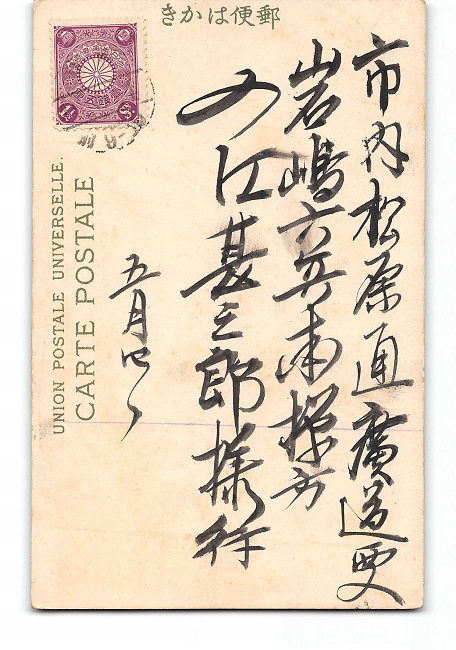 郵便はかき
市内松原通廣道
岩嶋六兵衛様方
入江甚三郎様行
五月四日
UNION POSTALE UNIVERSELLE.
CARTE POSTALE